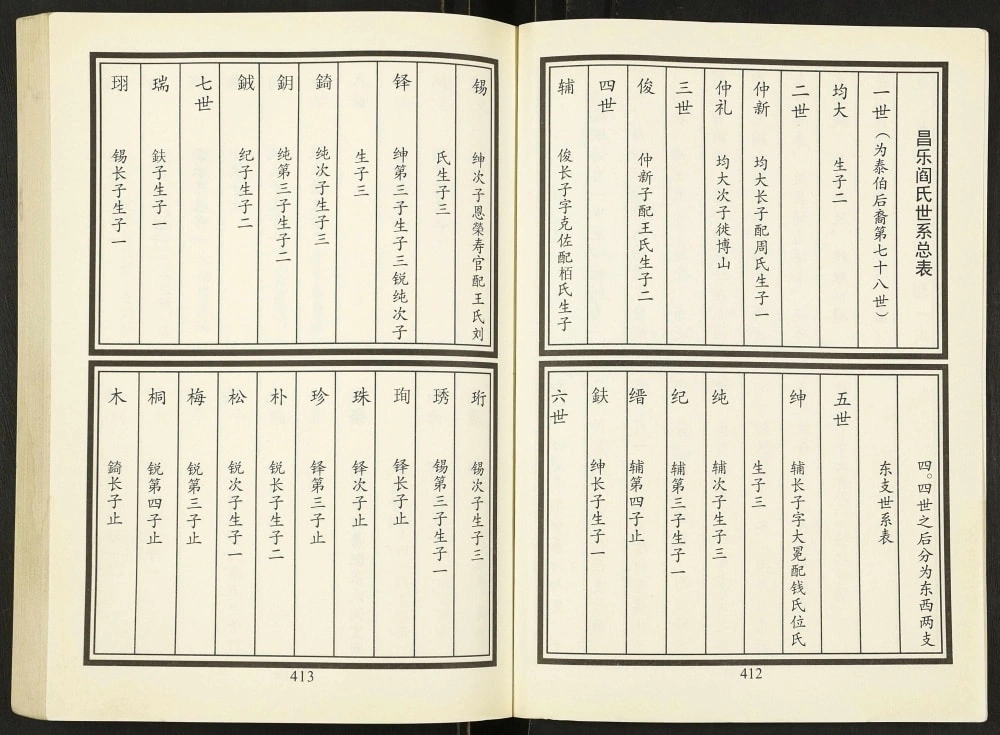 昌乐阎氏世系总表
一世（为泰伯后裔第七十八世）
均大 生子二
二世
仲新 均大长子配周氏生子一
仲礼 均大次子徙博山
三世
俊 仲新子配王氏生子二
四世
辅 俊长子字克佐配栢氏生子
四。四世之后分为东西两支
东支世系表
五世
绅 辅长子字大冕配钱氏位氏
生子三
纯 辅次子生子三
纪 辅第三子生子一
缙 辅第四子止
鈇 绅长子生子一
六世
412
锡 绅次子恩榮寿官配王氏刘
氏生子三
铎 绅第三子生子三锐纯次子
生子三
錡 纯次子生子三
鈅 纯第三子生子二
鋮 纪子生子二
七世
瑞 鈇子生子一
珝 锡长子生子一
珩 锡次子生子三
琇 锡第三子生子一
珣 铎长子止
珠 铎次子止
珍 铎第三子止
朴 锐长子生子二
松 锐次子生子一
梅 锐第三子止
桐 锐第四子止
木 錡长子止
413